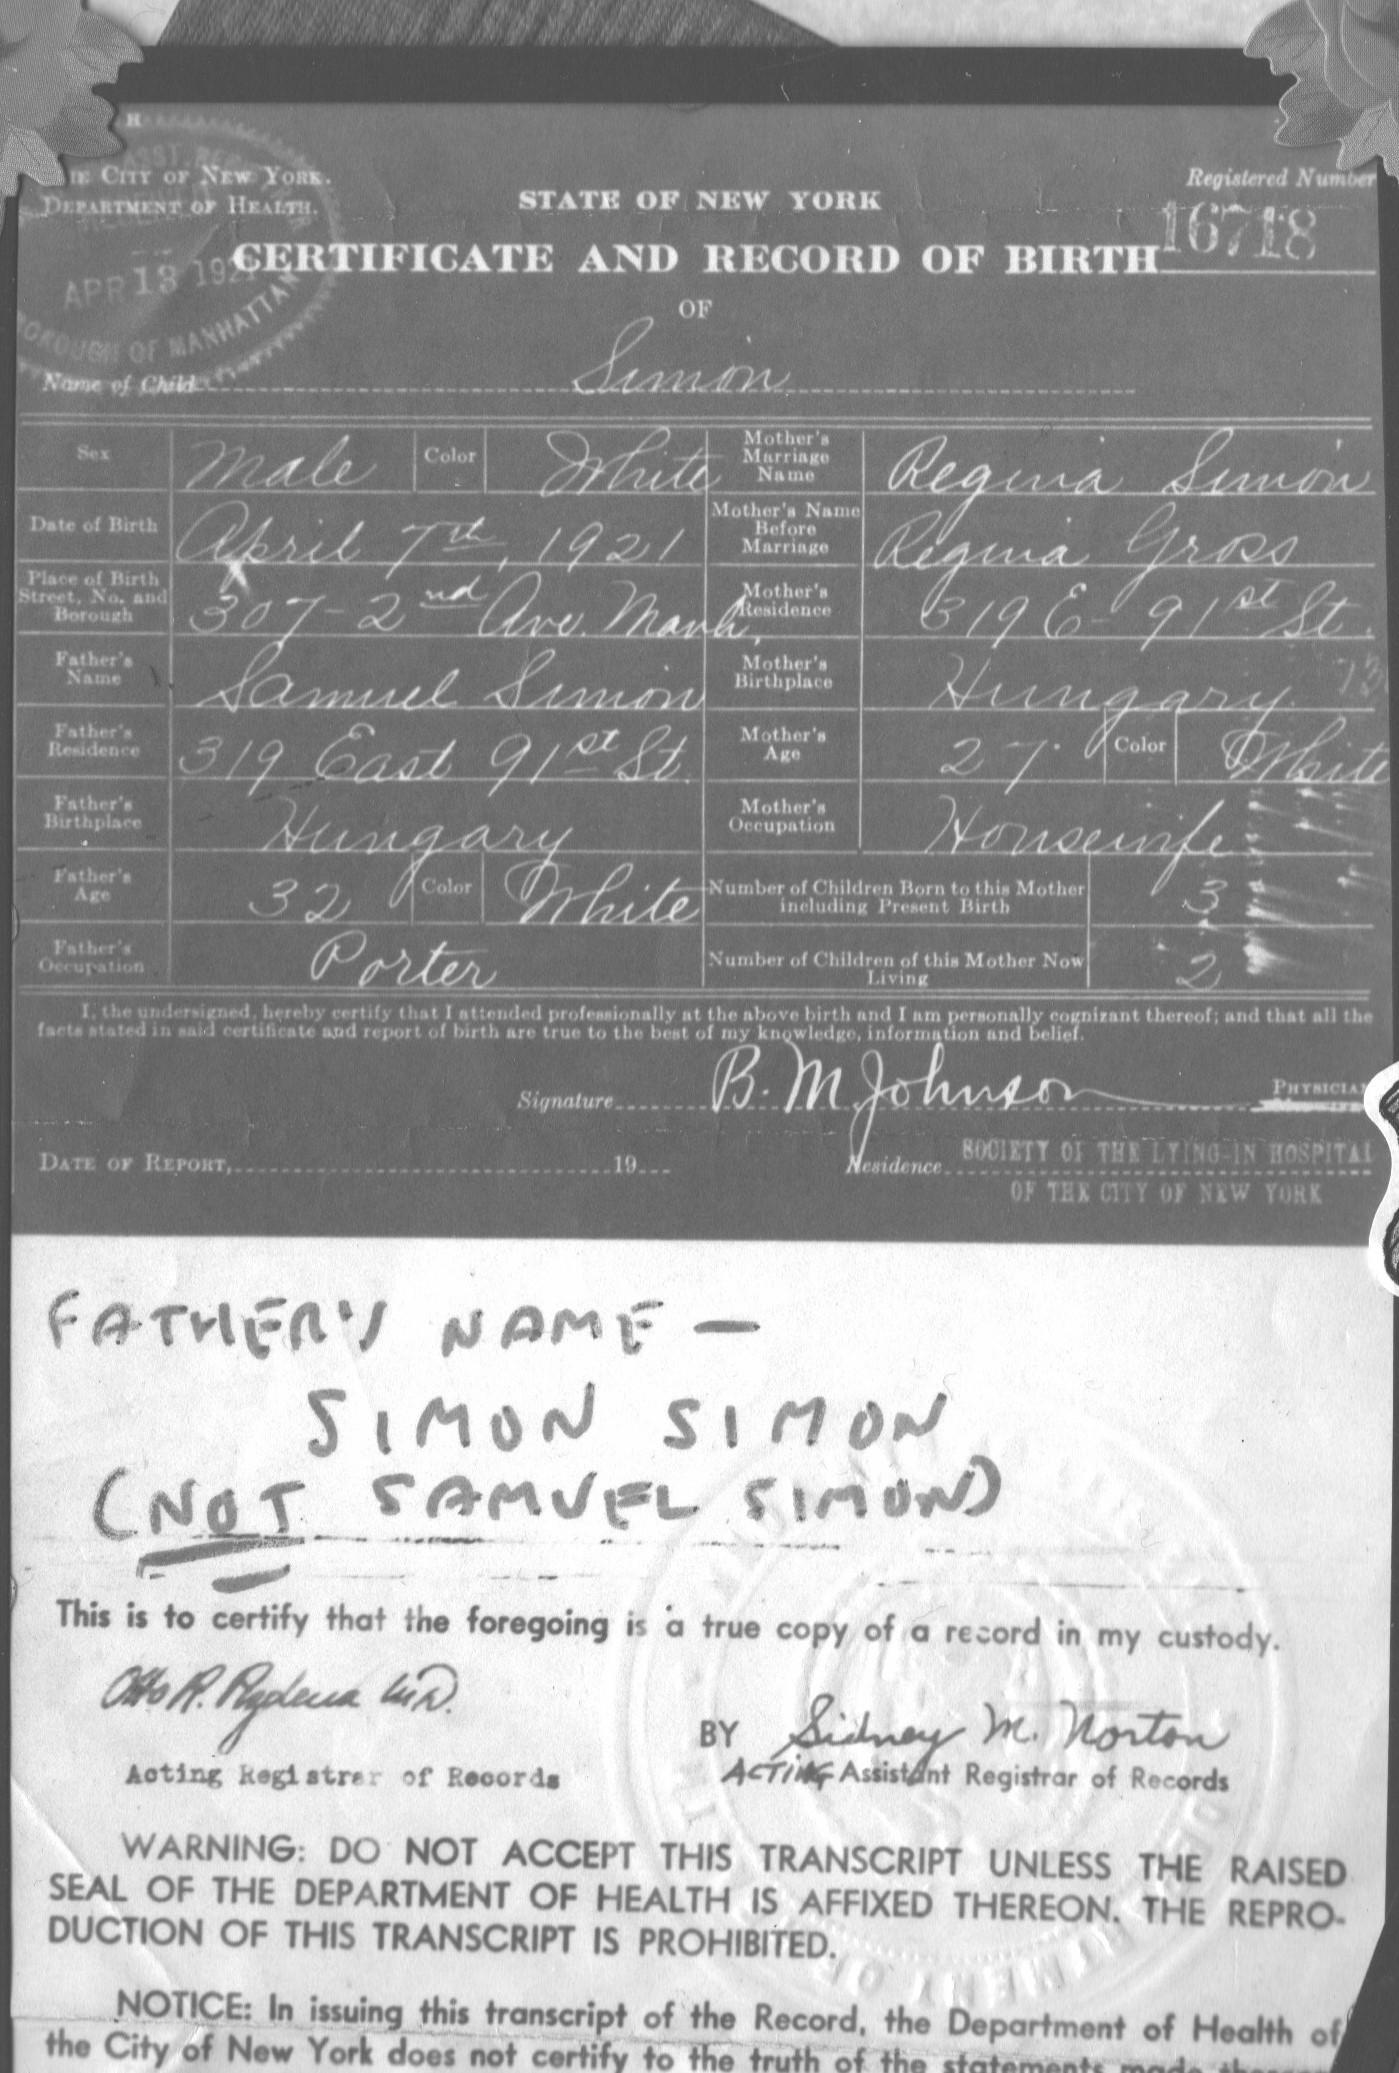 H
HE CITY OF NEW YORK.
DEPARTMENT OF HEALTH.
ASST. REG
APR 13 192
BOROUGH OF MANHATTAN
STATE OF NEW YORK
Registered Number
16718
CERTIFICATE AND RECORD OF BIRTH
OF
Name of Child Simon
Sex Male Color White Mother's Marriage Name Regina Simon
Date of Birth April 7th, 1921 Mother's Name Before Marriage Regina Gross
Place of Birth Street, No. and Borough 307-2nd Ave. Manh, Mother's Residence 319 E- 91st St.
Father's Name Samuel Simon Mother's Birthplace Hungary
Father's Residence 319 East 91st St. Mother's Age 27 Color White
Father's Birthplace Hungary Mother's Occupation Housewife
Father's Age 32 Color White Number of Children Born to this Mother including Present Birth 3
Father's Occupation Porter Number of Children of this Mother Now Living 2
I, the undersigned, hereby certify that I attended professionally at the above birth and I am personally cognizant thereof; and that all the
facts stated in said certificate and report of birth are true to the best of my knowledge, information and belief.
Signature B. M. Johnson PHYSICIAN
DATE OF REPORT, 19 Residence SOCIETY OF THE LYING-IN HOSPITAL
OF THE CITY OF NEW YORK
FATHER'S NAME —
SIMON SIMON
(NOT SAMUEL SIMON)
This is to certify that the foregoing is a true copy of a record in my custody.
Otto R. M.D.
BY Sidney M. Norton
Acting Registrar of Records
ACTING Assistant Registrar of Records
WARNING: DO NOT ACCEPT THIS TRANSCRIPT UNLESS THE RAISED
SEAL OF THE DEPARTMENT OF HEALTH IS AFFIXED THEREON. THE REPRO-
DUCTION OF THIS TRANSCRIPT IS PROHIBITED.
NOTICE: In issuing this transcript of the Record, the Department of Health of
the City of New York does not certify to the truth of the statements made